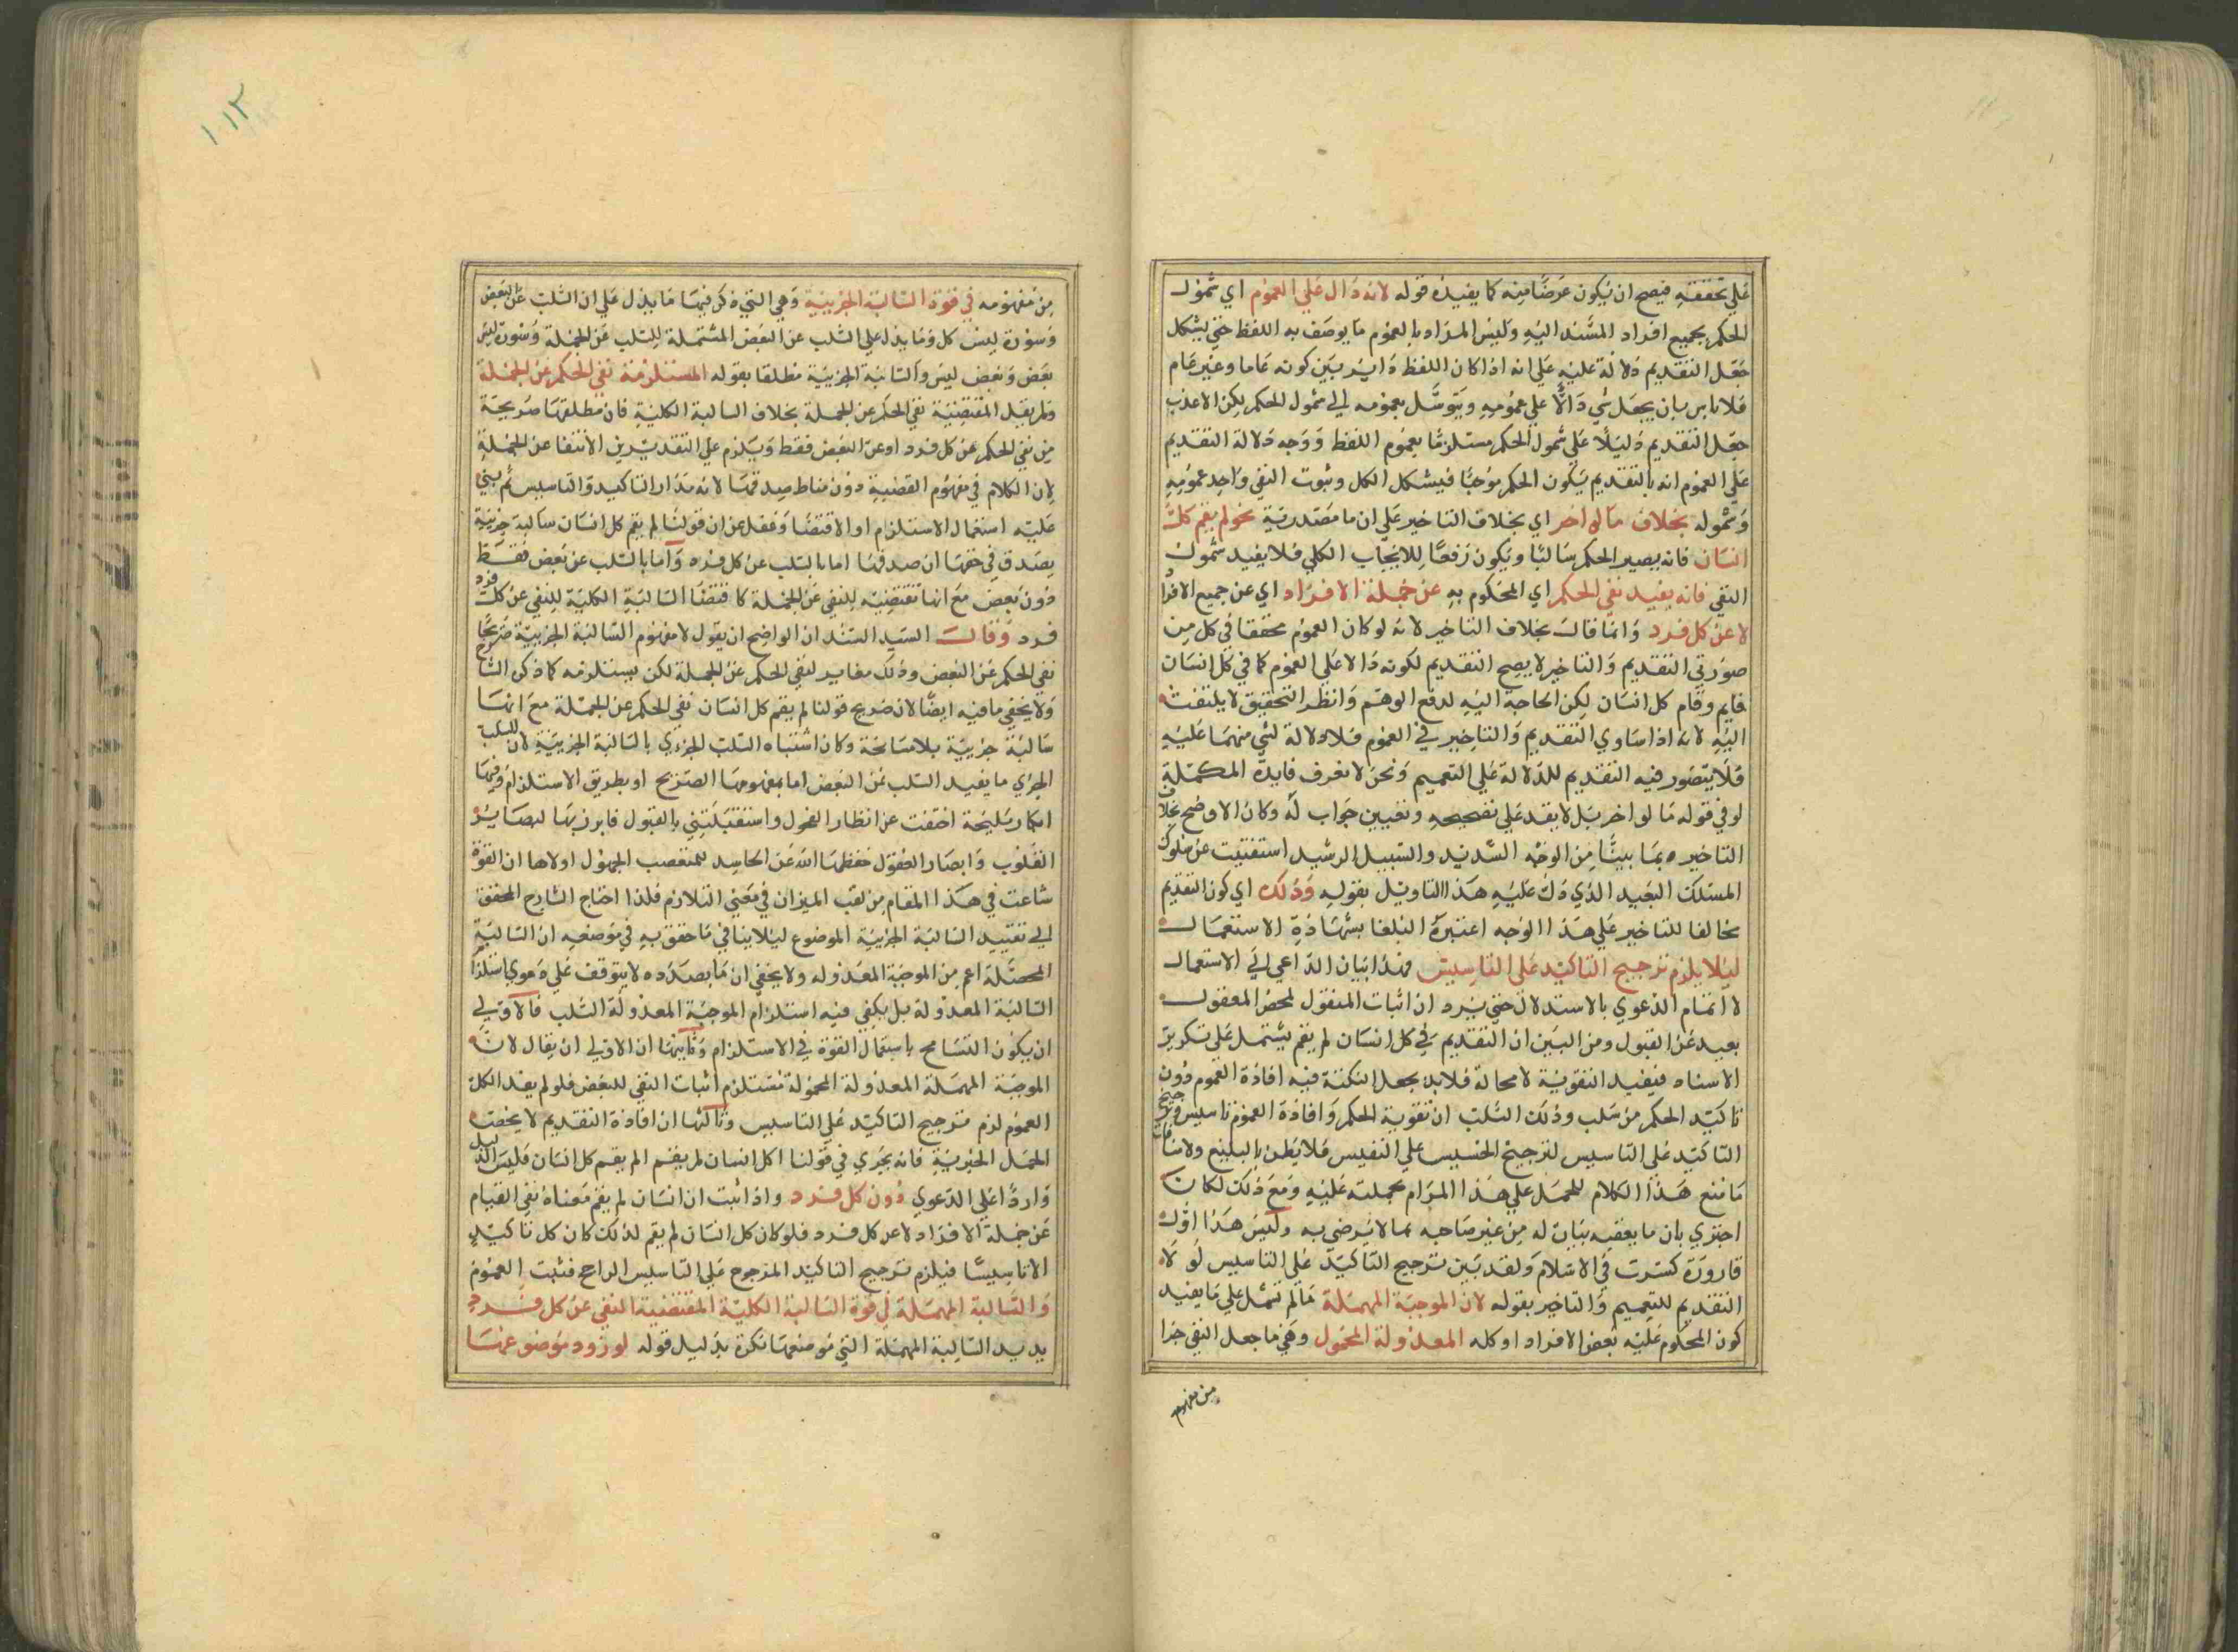 علي تحققه فيصح ان يكون عرضا منه كما يفيده قوله لانه دال علي العموم اي شمول
الحكم بجميع افراد المسند اليه وليس المراد بالعموم ما يوصف به اللفظ حتي يشكل
جعل التقديم دلالة عليه علي انه اذا كان اللفظ دايربين كونه عاما وغير عام
فلا باس بان يجعل شي دالا علي عمومه ويتوسل بعمومه الي شمول الحكم لكن الاعذب
جعل التقديم دليلا علي شمول الحكم مستلزما بعموم اللفظ ووجه دلالة التقديم
علي العموم انه بالتقديم يكون الحكم موجبا فيشكل الكل وثبوت النفي واحد عمومه
وشموله بخلاف ما لو اخر اي بخلاف التاخير علي ان ما مصدرية نحو لم يقم كل
انسان فانه يصير الحكم سالبا ويكون رفعا للايجاب الكلي فلا يفيد شمول
النفي فانه يفيد نفي الحكم اي المحكوم به عن جملة الافراد اي عن جميع الافراد
لا عن كل فرد وانما قال بخلاف التاخير لانه لو كان العموم محققا في كل من
صورتي التقديم والتاخير لا يصح التقديم لكونه دالا علي العموم كما في كل انسان
قايم وقام كل انسان لكن الحاجة اليه لدفع الوهم وانظر التحقيق لا يلتفت
اليه لانه اذا ساوي التقديم والتاخير في العموم فلا دلالة لشي منهما عليه
فلا يتصور فيه التقديم للدلالة علي التعميم ونحن لا نعرف فايدة المكملة
لو في قوله ما لو اخر بل لا يقد علي تصحيحه وتعيين جواب له وكان الاوضح بخلاف
التاخيره بما بينا من الوجه السديد والسبيل الرشيد استغنيت عن سلوك
المسلك البعيد الذي دل عليه هذا التاويل بقوله وذلك اي كون التقديم
مخالفا للتاخير علي هذا الوجه اعتبره البلغا بشهادة الاستعمال
ليلا يلزم ترجيح التاكيد علي التاسيس فهذا بيان الداعي الي الاستعمال
لا اتمام الدعوي بالاستدلال حتي يرد ان اثبات المنقول لمحض المعقول
بعيد عن القبول ومن البين ان التقديم في كل انسان لم يقم يشتمل علي تكرير
الاسناد فيفيد التقوية لا محالة فلابد بجعل النكتة فيه افادة العموم دون
تاكيد الحكم من سلب وذلك السلب ان تقوية الحكم وافادة العموم تاسيس وترجيح
التاكيد علي التاسيس لترجيح الخسيس علي النفيس فلا يظن بالبليغ ولامنافات
ما نتع هذا الكلام للحمل علي هذا المرام بجملته عليه ومع ذلك لكان
اجتري بان ما يعقبه بيان له من غير صاحبه بما لا يرضي به وليس هذا اول
قارورة كسرت في الاسلام ولقد بين ترجيح التاكيد علي التاسيس لو لا
التقديم للتعميم والتاخير بقوله لان الموجبة المهملة ما لم تشمل علي ما يفيد
كون المحكوم عليه بعض الافراد او كله المعدولة المحمول وهي ما جعل النفي جزا
من مفهومه
من مفهومه في قوة السالبة الجزيية وهي التي ذكر فيها ما يدل علي ان السلب عن البعض
وسورة ليس كل وما يدل علي السلب عن البعض المشتملة للسلب عن الجملة وسورة ليس
بعض وبعض ليس والسالبة الجزيية مطلقا بقوله المستلزمة نفي الحكم عن الجملة
ولم يقل المقتضية نفي الحكم عن الجملة بخلاف السالبة الكلية فان مطلقها صريحة
من نفي الحكم عن كل فرد او عن البعض فقط ويلزم علي التقديرين الانتفا عن الجملة
لان الكلام في مفهوم القضية دون مناط صدقها لانه مدار التاكيد والتاسيس ثم يبني
عليه استعمال الاستلزام او الاقتضا وغفل عن ان قولنا لم يقم كل انسان سالبة جزيية
يصدق في حقها ان صدقها اما بالسلب عن كل فرد واما بالسلب عن بعض فقط
دون بعض مع انها تقتضيه للنفي عن الجملة كاقتضا السالبة الكلية للنفي عن كل فرد
فرد وقال السيد السند ان الواضح ان يقول لا مفهوم السالبة الجزيية صريحا
نفي الحكم عن البعض وذلك مغاير لنفي الحكم عن الجملة لكن يستلزمه كما ذكر الشارح
ولا يخفي ما فيه ايضا لان صريح قولنا لم يقم كل انسان نفي الحكم عن الجملة مع انها
سالبة جزيية بلا مسامحة وكان اشتباه السلب الجزءي بالسالبة الجزيية لان للسلب
الجزي ما يفيد السلب عن البعض اما بمفهومها الصريح او بطريق الاستلزام وفيها
ابكار سليحة اختفت عن انظار الفحول واستقبلتني بالقبول فابرزتها لبصاير
القلوب وابصار العقول حفظها الله عن الحاسد المتعصب الجهول اولاها ان القوة
شاعت في هذا المقام من لقب الميزان في معني التلازم فلذا احتاج الشارح المحقق
الي تقييد السالبة الجزيية الموضوع ليلا ينافي ما حقق به في موضعه ان السالبة
المحصلة اعم من الموجبة المعدولة ولا يخفي ان ما بصدده لا يتوقف علي دعوي استلزام
السالبة المعدولة بل يكفي فيه استلزام الموجبة المعدولة السلب فالاولي
ان يكون التسامح باستعمال القوة في الاستلزام وثانيها ان الاولي ان يقال لان
الموجبة المهملة المعدولة المحمولة تستلزم اثبات النفي للبعض فلو لم يفد الكل
العموم لزم ترجيح التاكيد علي التاسيس وثالثها ان افادة التقديم لا يخص
الجمل الخبرية فانه يجري في قولنا اكل انسان لم يقم الم يقم كل انسان فليس الدليل
واردا علي الدعوي دون كل فرد واذا ثبت ان انسان لم يقم معناه نفي القيام
عن جملة الافراد لا عن كل فرد فلو كان كل انسان لم يقم لذلك كان كل تاكيد
الا تاسيسا فيلزم ترجيح التاكيد المرجوح علي التاسيس الراجح فثبت العموم
والسالبة المهملة في قوة السالبة الكلية المقتضية النفي عن كل فرد
يريد السالبة المهملة التي موضعها نكرة بدليل قوله لورود موضوعها
١١٢